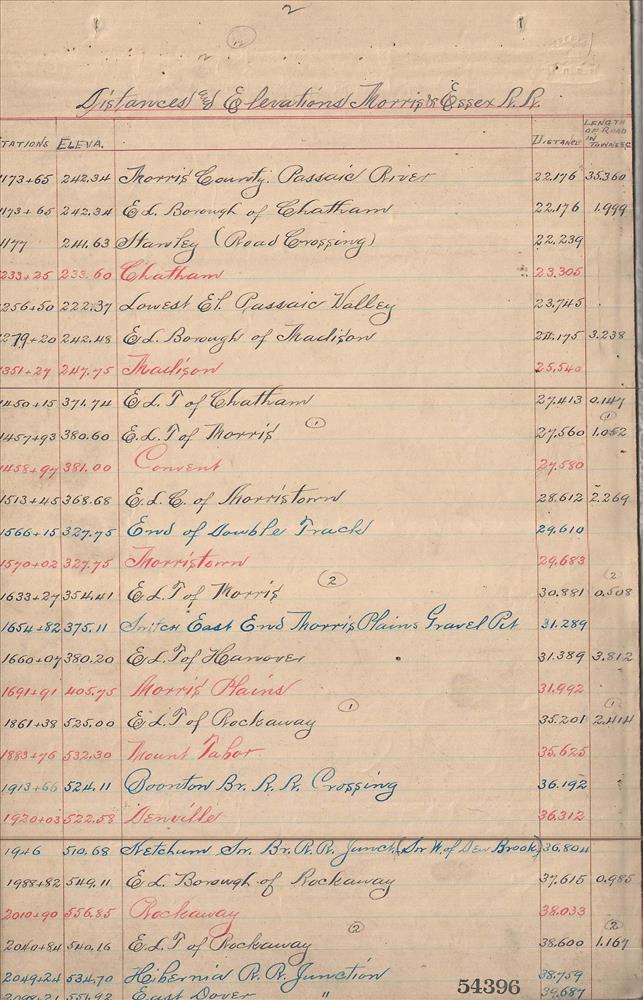 2
Distances and Elevations Morris & Essex R.R.
STATIONS ELEVA. DISTANCE LENGTH OF ROAD IN TOWNES
1173+65 242.34 Morris County. Passaic River 22.176 35.360
1173+65 242.34 E.L. Borough of Chatham 22.176 1.999
1177 241.63 Stanley (Road Crossing) 22.239
233+25 233.60 Chatham 23.305
256+50 222.37 Lowest El. Passaic Valley 23.745
279+20 242.48 E.L. Borough of Madison 24.175 3.238
351+27 247.75 Madison 25.540
1450+15 371.74 E.L.T of Chatham 27.413 0.147
1457+93 380.60 E.L.T of Morris (1) 27.560 (1) 1.052
1458+97 381.00 Convent 27.580
1513+45 368.68 E.L.C. of Morristown 28.612 2.269
1566+15 327.75 End of Double Track 29.610
1570+02 327.75 Morristown 29.683
1633+27 354.41 E.L.T of Morris (2) 30.881 (2) 0.508
1654+82 375.11 Switch East End Morris Plains Gravel Pit 31.289
1660+07 380.20 E.L.T of Hanover 31.389 3.812
1691+91 405.75 Morris Plains 31.992
1861+38 525.00 E.L.T of Rockaway (1) 35.201 (1) 2.414
1883+76 532.30 Mount Tabor. 35.625
1913+66 524.11 Boonton Br. R.R. Crossing 36.192
1920+03 522.58 Denville 36.312
1946 510.68 Ketchum Sr. Br. R.R. Junct. (Sr W. of Den Brook) 36.804
1988+82 549.11 E.L. Borough of Rockaway 37.615 0.985
2010+90 556.85 Rockaway 38.033
2040+84 540.16 E.L.T of Rockaway (2) 38.600 (2) 1.167
2049+24 534.70 Hibernia R.R. Junction 38.759
2098+21 551.92 East Dover " 39.687
54396